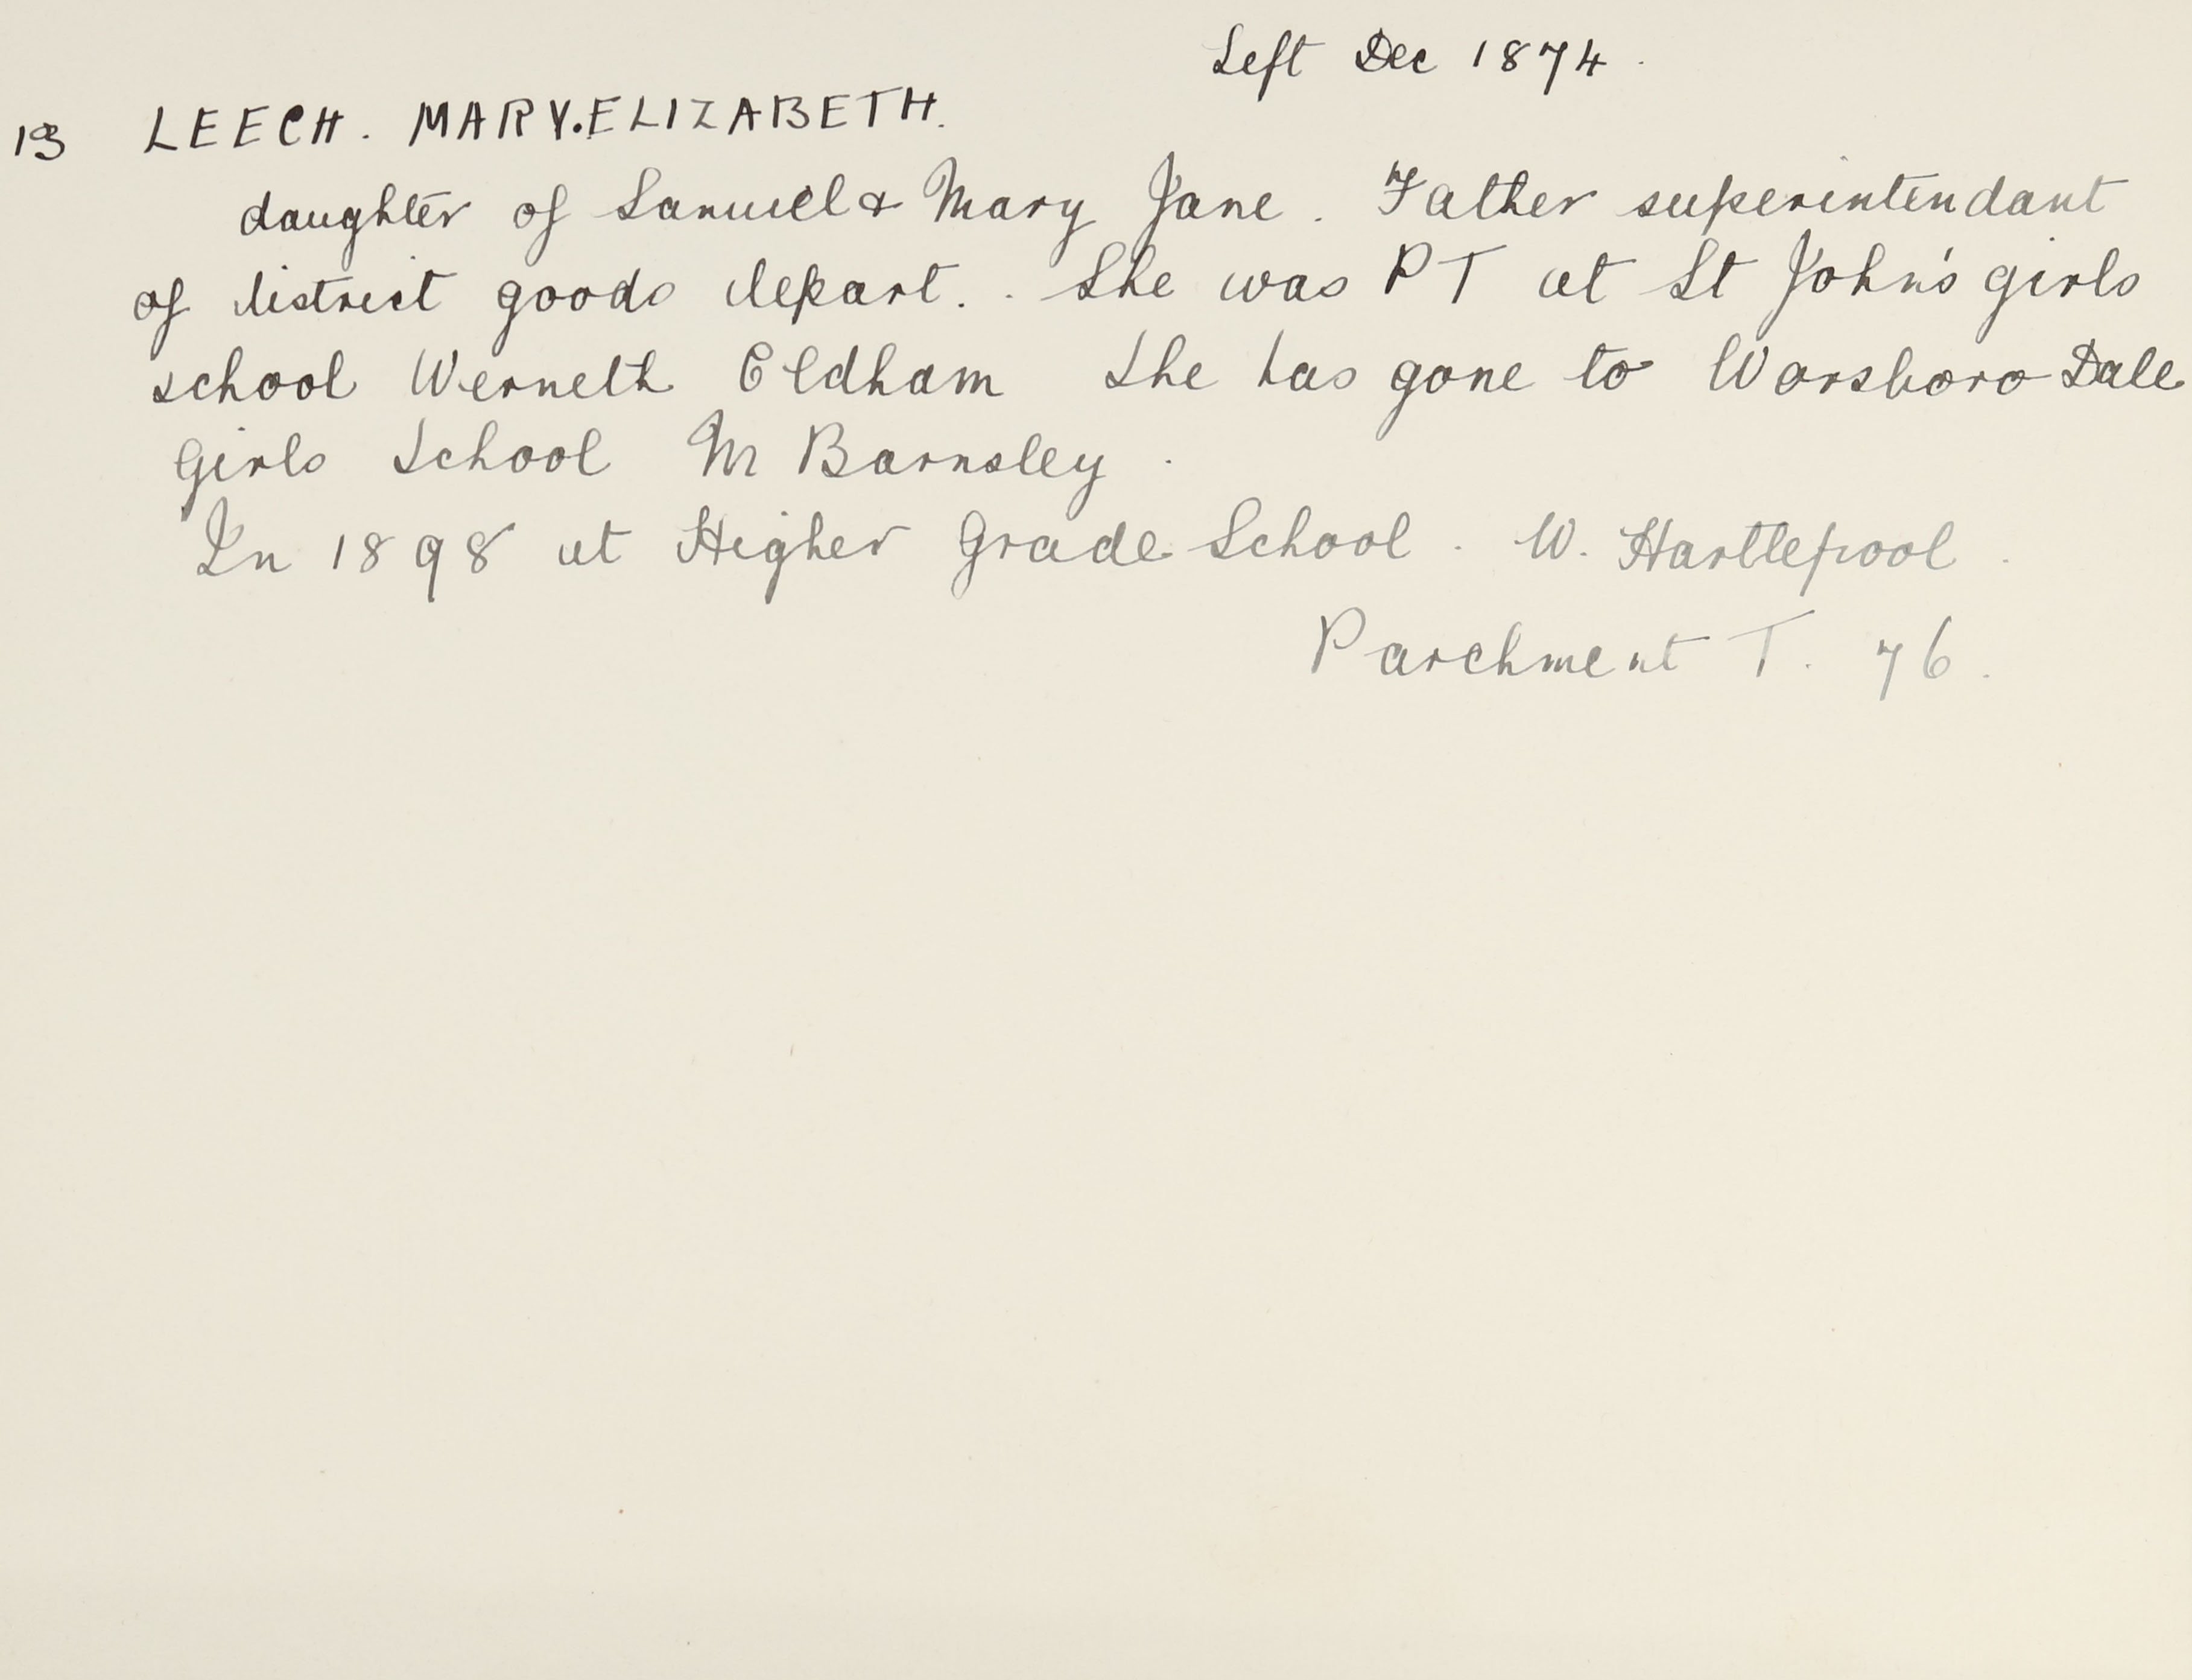 Left Dec 1874.
13 LEECH. MARY.ELIZABETH.
daughter of Samuel & Mary Jane. Father superintendant
of district goods depart.. She was PT at St John's girls
school Werneth Oldham She has gone to Worsboro Dale
Girls School Nr Barnsley.
In 1898 at Higher Grade School. W. Hartlepool.
Parchment T. 76.